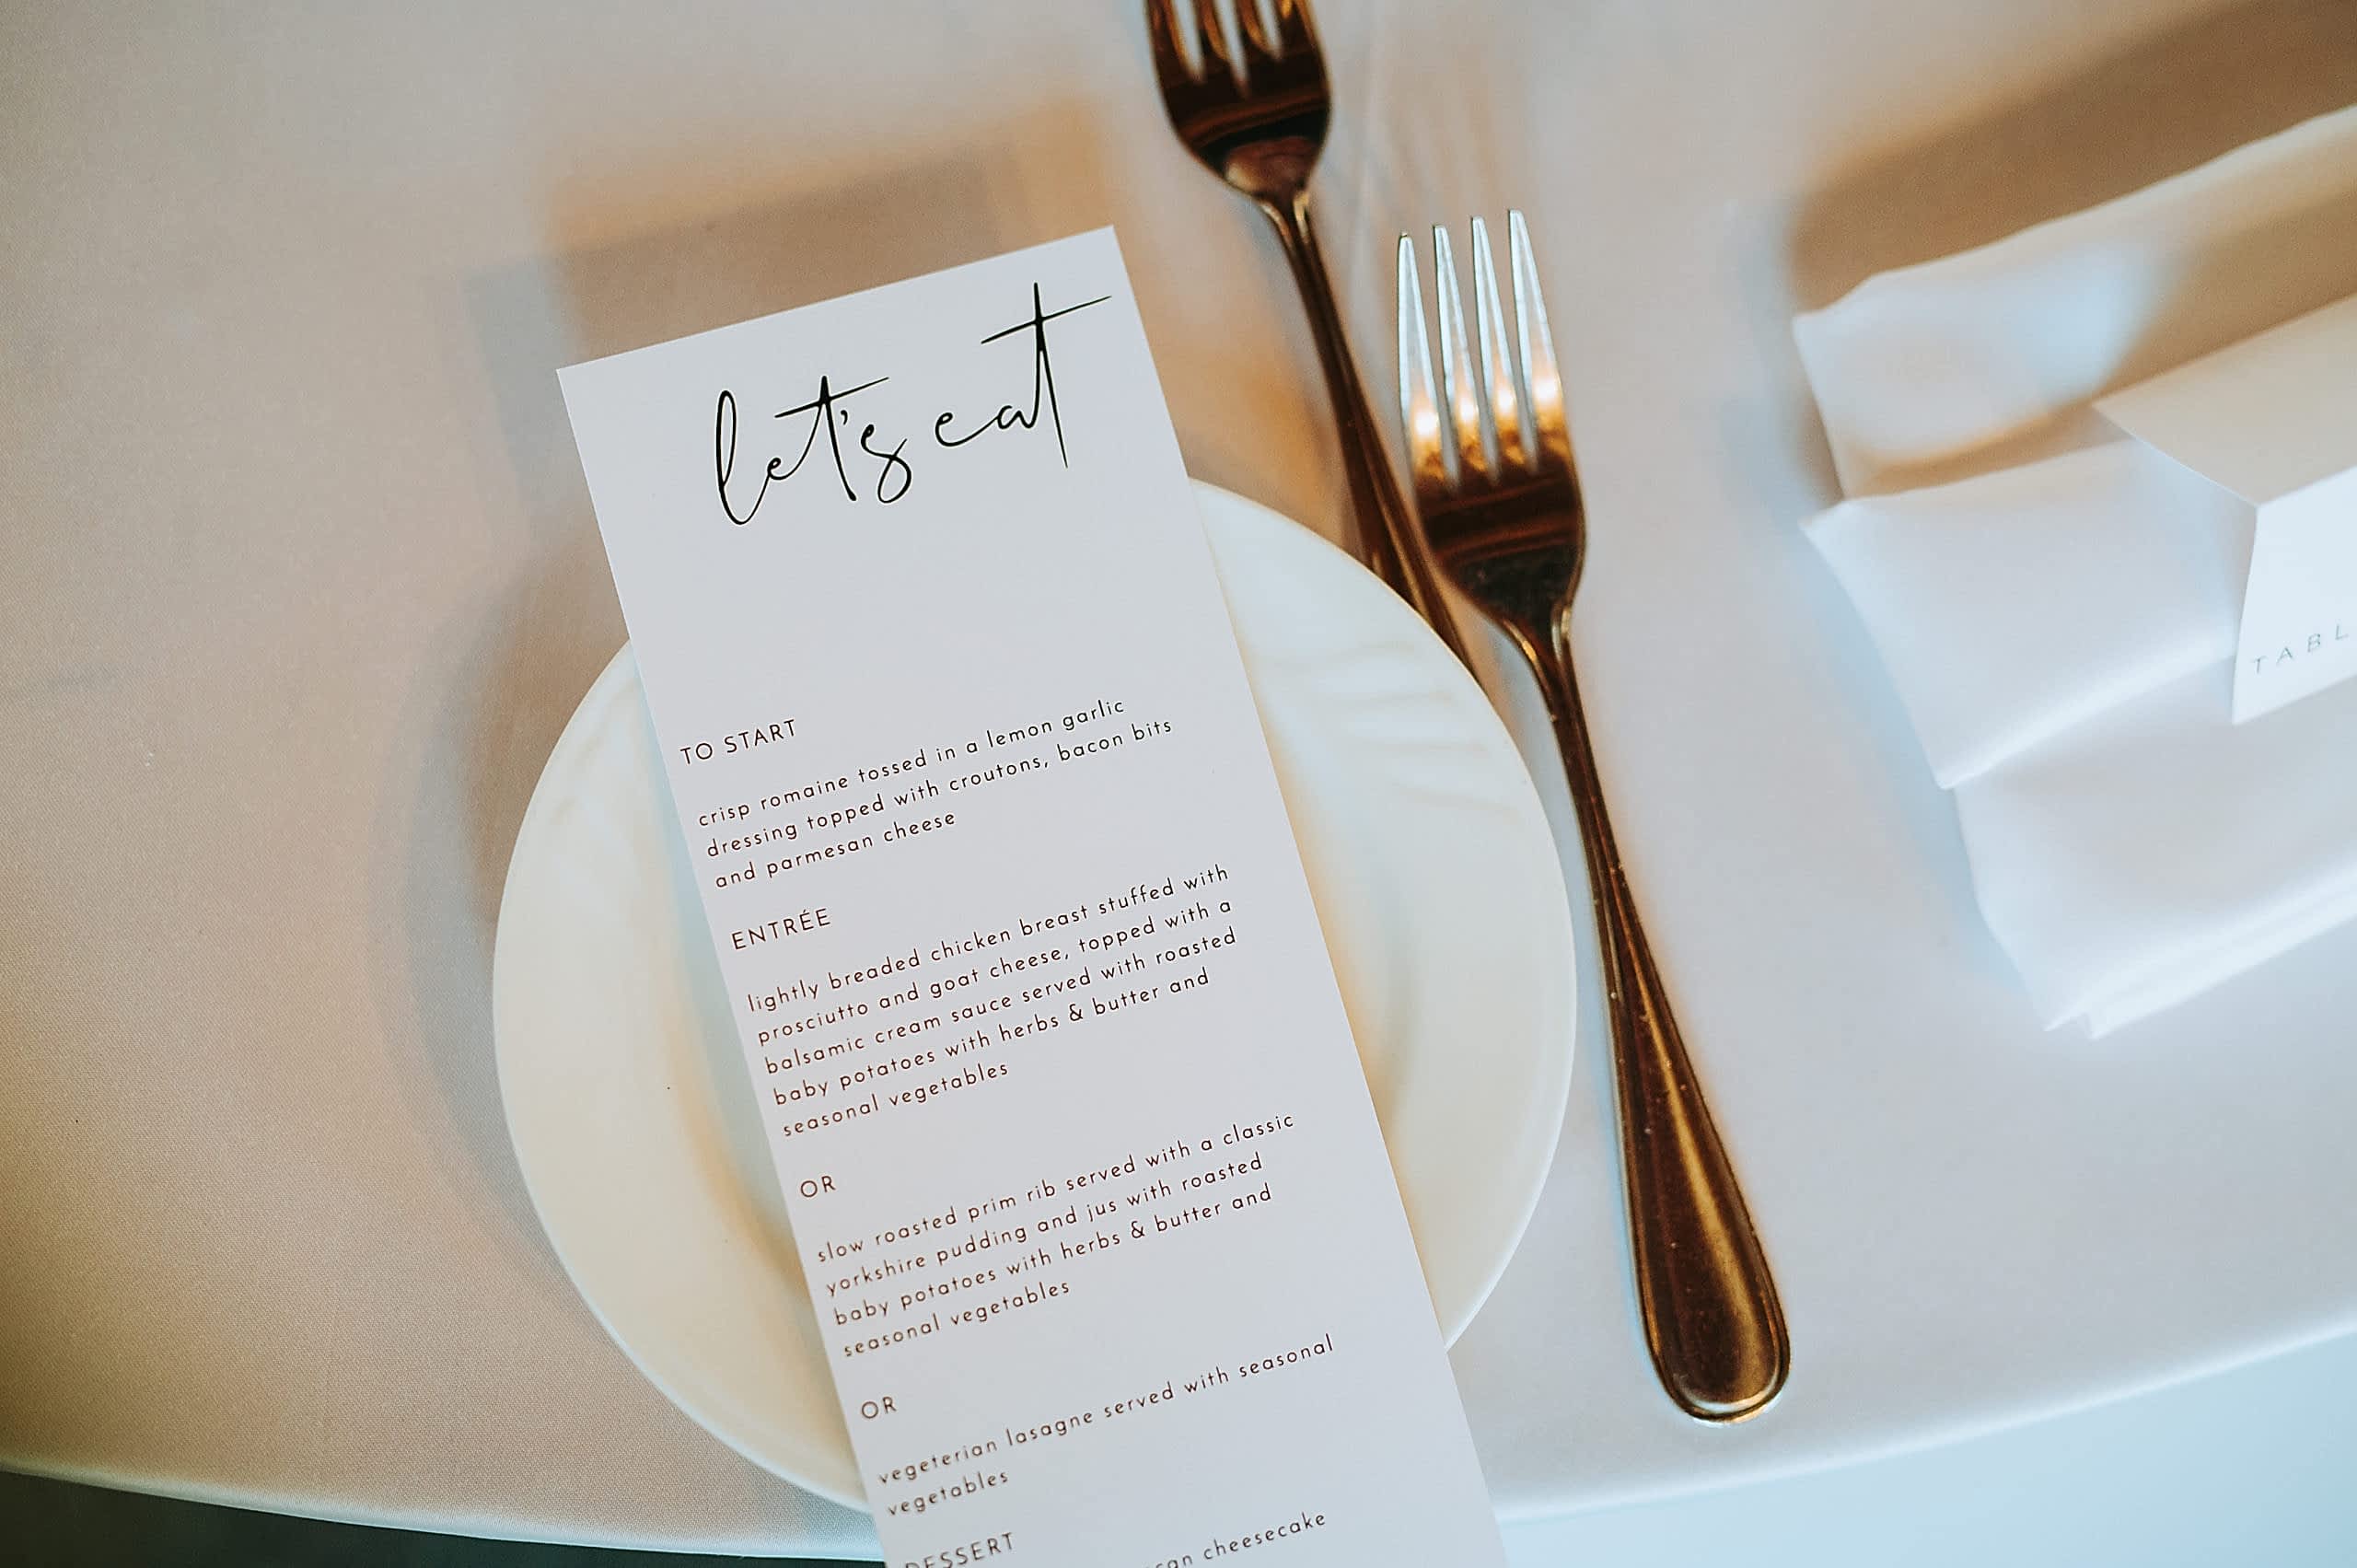 let's eat
TO START
crisp romaine tossed in a lemon garlic
dressing topped with croutons, bacon bits
and parmesan cheese
ENTRÉE
lightly breaded chicken breast stuffed with
prosciutto and goat cheese, topped with a
balsamic cream sauce served with roasted
baby potatoes with herbs & butter and
seasonal vegetables
OR
slow roasted prim rib served with a classic
yorkshire pudding and jus with roasted
baby potatoes with herbs & butter and
seasonal vegetables
OR
vegeterian lasagne served with seasonal
vegetables
DESSERT
cheesecake